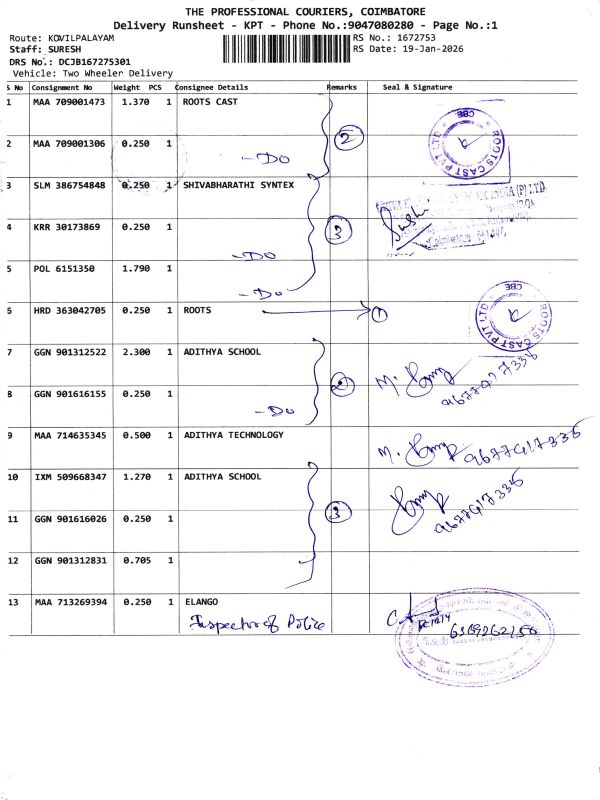 THE PROFESSIONAL COURIERS, COIMBATORE
Delivery Runsheet - KPT - Phone No.:9047080280 - Page No.:1
Route: KOVILPALAYAM
RS No.: 1672753
Staff: SURESH
RS Date: 19-Jan-2026
DRS No.: DCJB167275301
Vehicle: Two Wheeler Delivery
S No Consignment No Weight PCS Consignee Details Remarks Seal & Signature
1 MAA 709001473 1.370 1 ROOTS CAST
2 MAA 709001306 0.250 1 -Do 2
ROOTS CAST PVT LTD CBE
3 SLM 386754848 0.250 1 SHIVABHARATHI SYNTEX
4 KRR 30173869 0.250 1 -Do 3
5 POL 6151350 1.790 1 -Do
6 HRD 363042705 0.250 1 ROOTS 1
ROOTS CAST PVT LTD CBE
7 GGN 901312522 2.300 1 ADITHYA SCHOOL
8 GGN 901616155 0.250 1 -Do 2
9 MAA 714635345 0.500 1 ADITHYA TECHNOLOGY
10 IXM 509668347 1.270 1 ADITHYA SCHOOL
11 GGN 901616026 0.250 1 3
12 GGN 901312831 0.705 1
13 MAA 713269394 0.250 1 ELANGO
Inspector of Police